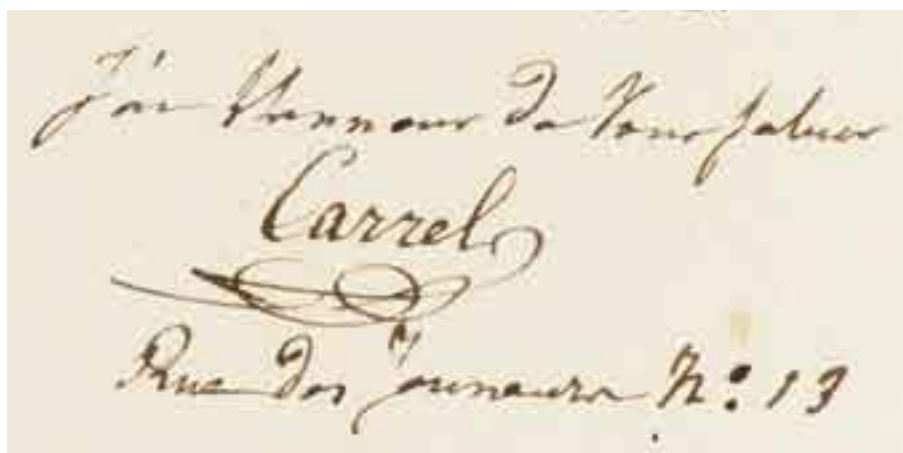 J'ai l'honneur de Vous saluer
Carrel
Rue des Jeuneurs N° 13